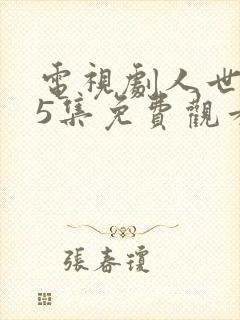 電視劇人世
5集免費觀看
張春瓊